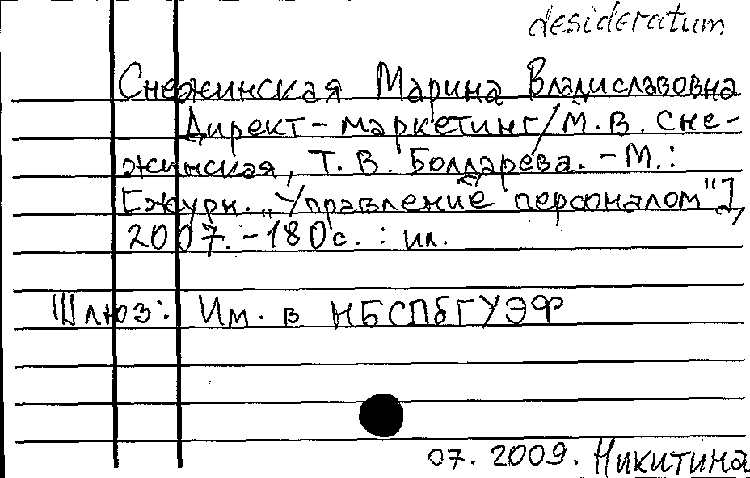 desideratum
Снежинская Марина Владиславовна
Директ-маркетинг/М.В. Сне-
жинская, Т.В. Болдарева. - М.:
[журн. „Управление персоналом"],
2007. - 180с. : ил.
Шлюз: Им. в НБСПбГУЭФ
07. 2009. Никитина